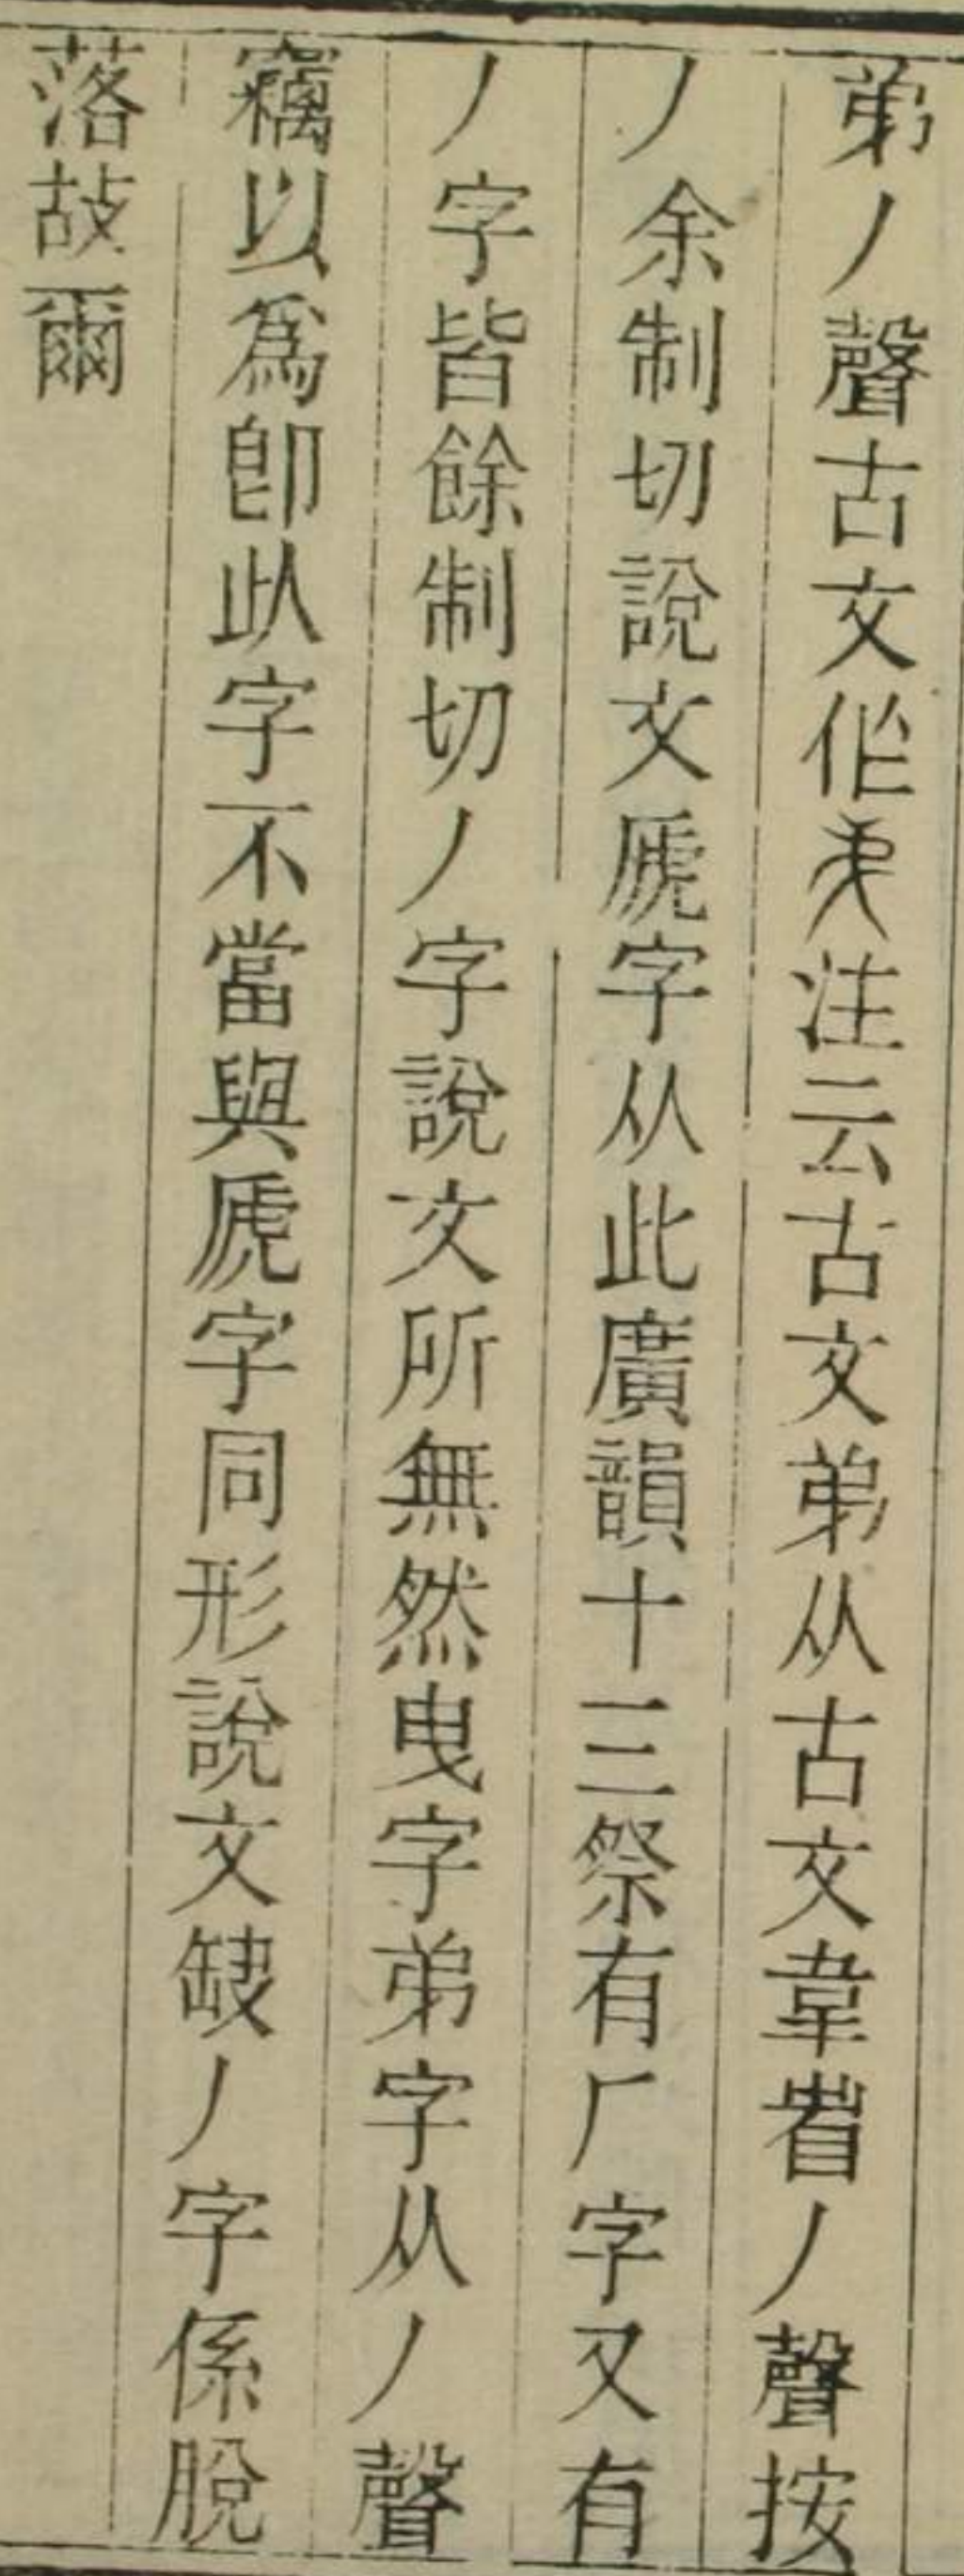 弟丿聲古文作𢎨注云古文弟从古文韋省丿聲按
丿余制切說文虒字从此廣韻十三祭有厂字又有
丿字皆餘制切丿字說文所無然曳字弟字从丿聲
竊以爲卽此字不當與虒字同形說文缺丿字係脫
落故爾